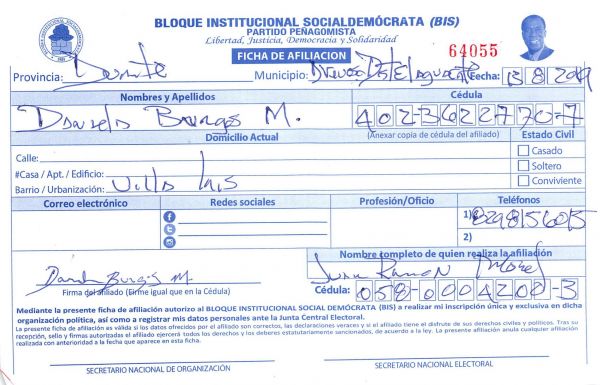 BLOQUE INSTITUCIONAL SOCIALDEMÓCRATA (BIS)
PARTIDO PEÑAGOMISTA
Libertad, Justicia, Democracia y Solidaridad
FICHA DE AFILIACION
64055
Provincia: Duarte Municipio: Fecha: 13 8 2019
Nombres y Apellidos Cédula
Burgos M. 402-3622770-7
Domicilio Actual (Anexar copia de cédula del afiliado) Estado Civil
Calle: Casado
#Casa / Apt. / Edificio: Soltero
Barrio / Urbanización: Villa Conviviente
Correo electrónico Redes sociales Profesión/Oficio Teléfonos
1) 8298156015
2)
Nombre completo de quien realiza la afiliación
Burgos M. Juan Ramon
Firma del afiliado (Firme igual que en la Cédula) Cédula: 058-0004208-3
Mediante la presente ficha de afiliación autorizo al BLOQUE INSTITUCIONAL SOCIAL DEMÓCRATA (BIS) a realizar mi inscripción única y exclusiva en dicha
organización política, así como a registrar mis datos personales ante la Junta Central Electoral.
La presente ficha de afiliación es válida si los datos ofrecidos por el afiliado son correctos, las declaraciones veraces y si el afiliado tiene el disfrute de sus derechos civiles y políticos. Tras su
recepción, sello y firmas autorizadas el afiliado ejercerá todos los derechos y los deberes estatutariamente sancionados, de acuerdo a la ley. La presente afiliación anula cualquier afiliación
realizada con anterioridad a la fecha que aparece en esta ficha.
SECRETARIO NACIONAL DE ORGANIZACIÓN SECRETARIO NACIONAL ELECTORAL